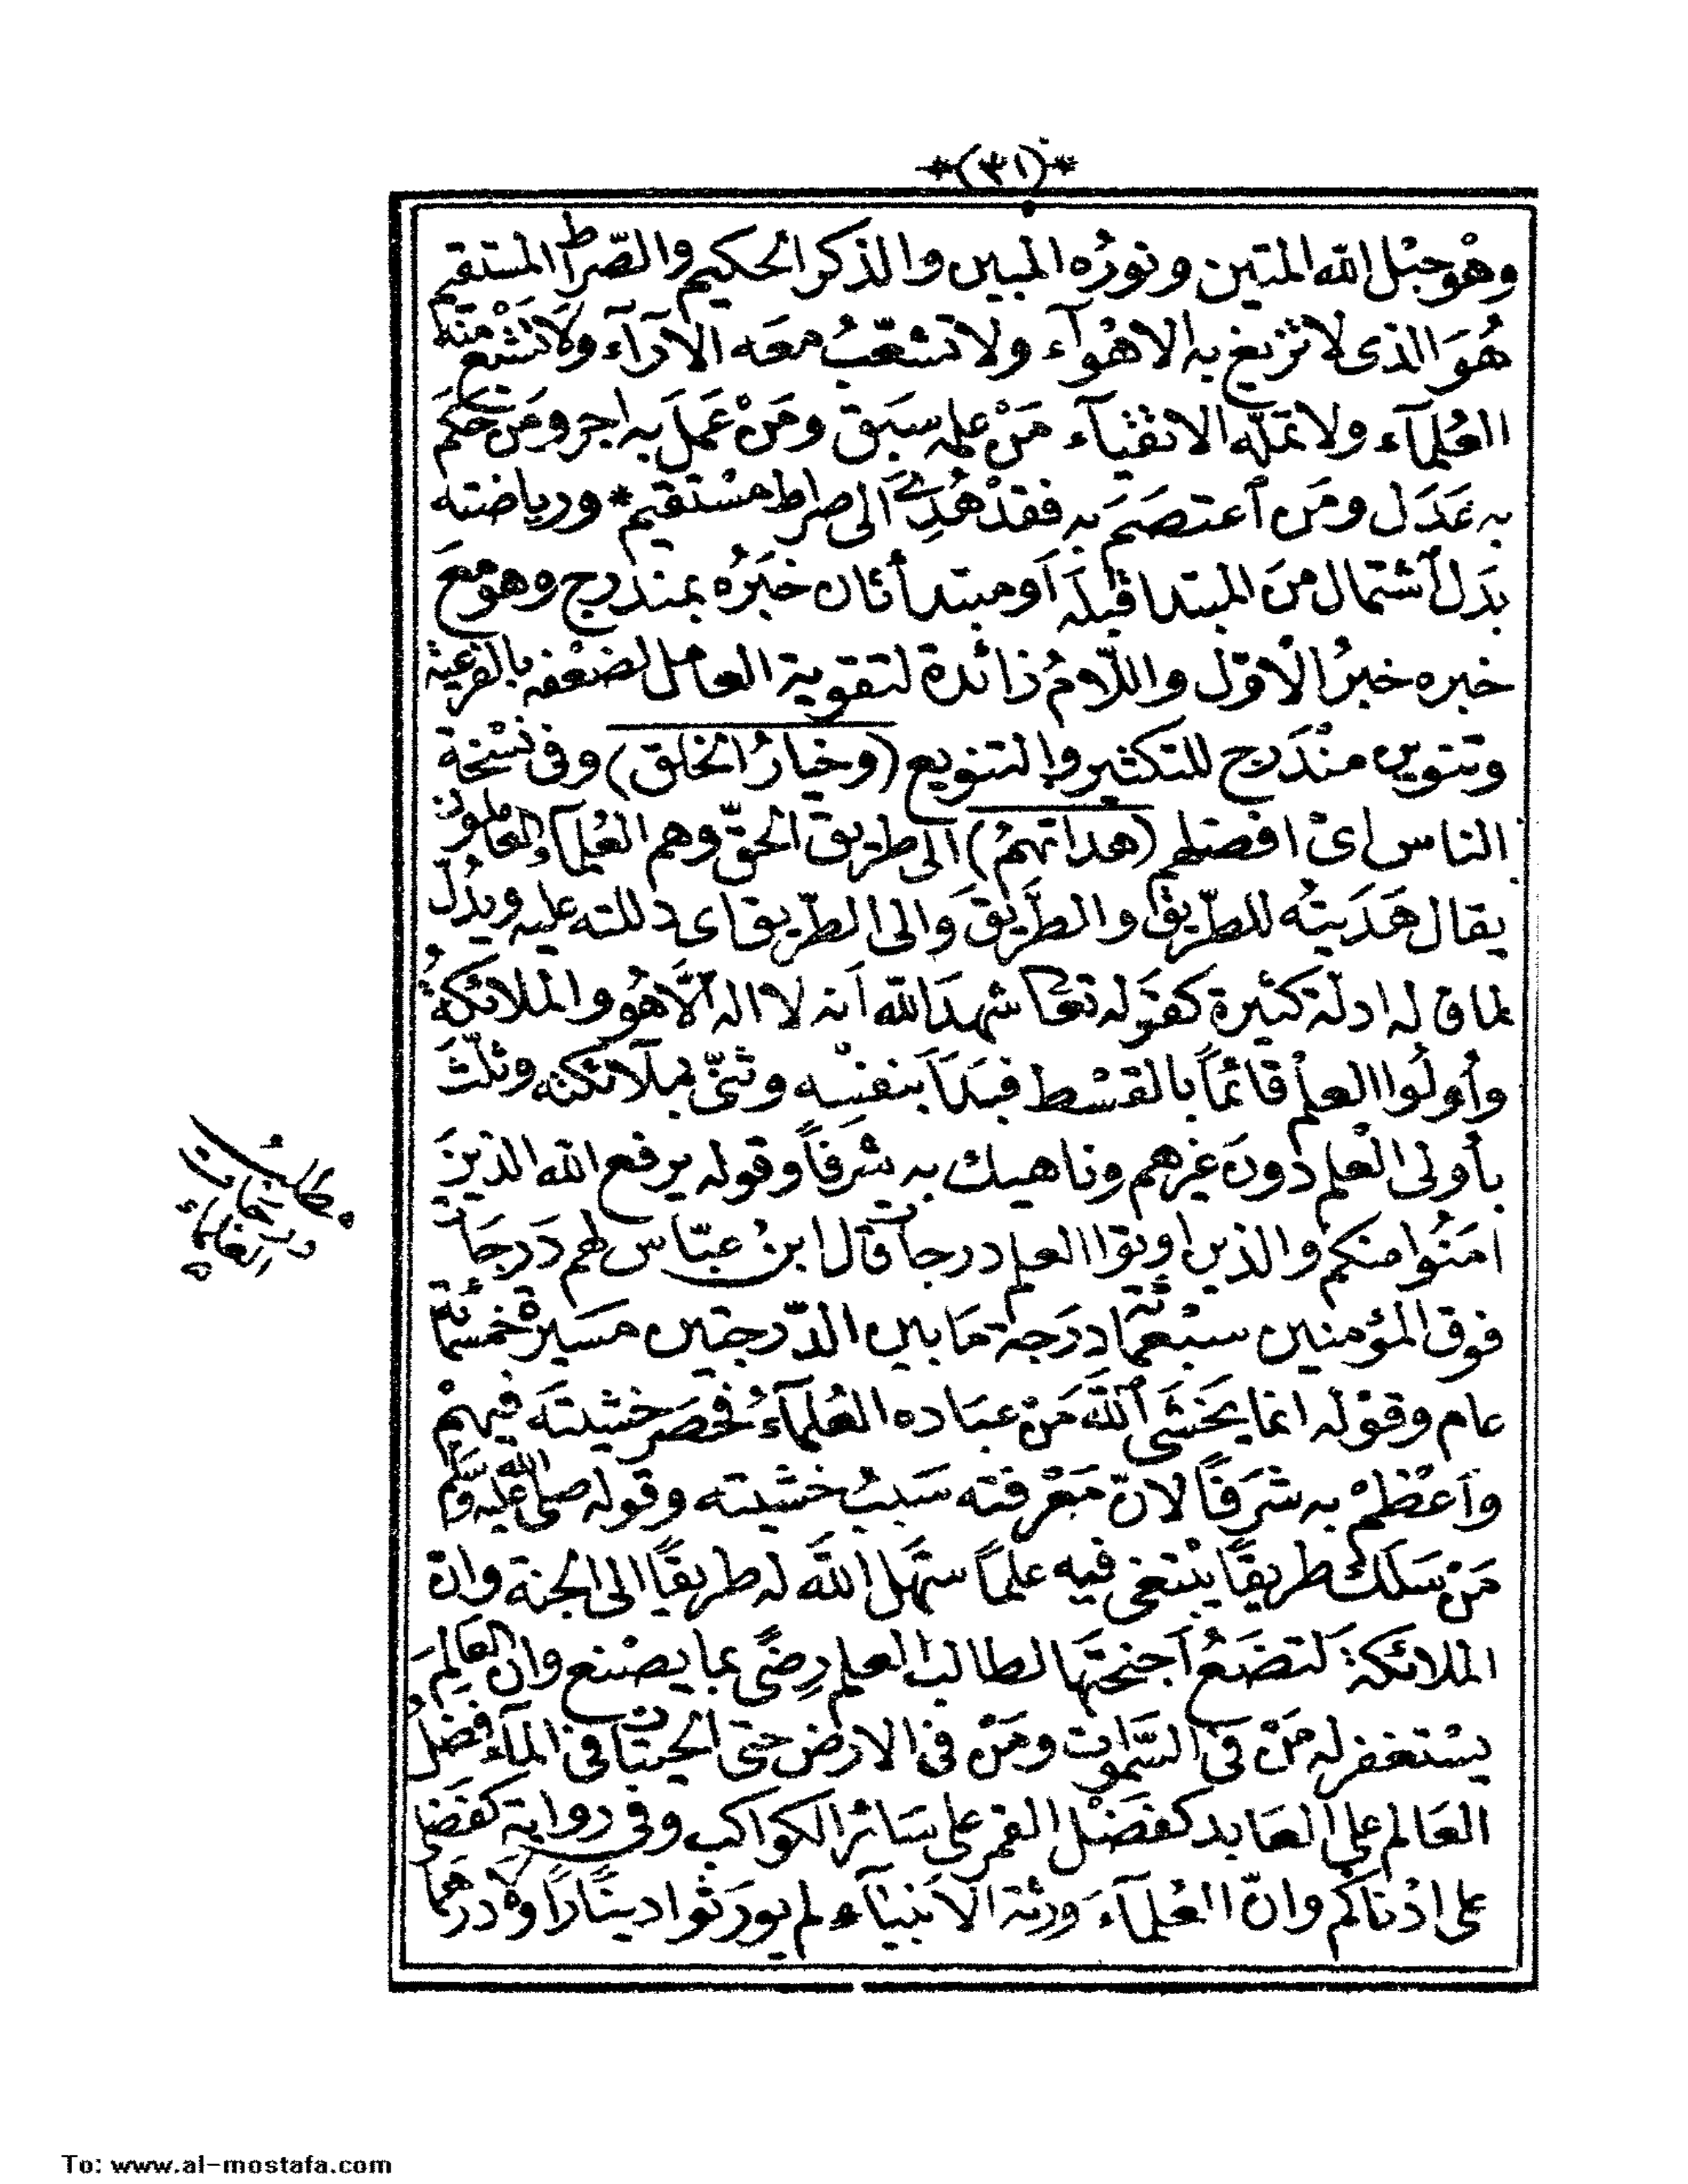 *(٣١)*
وهْو حبْل الله المتين ونورُه المبين والذكر الحكيم والصّراط المستقيم
هُوَ الذى لا تزيغ به الاهْوآء ولا تشعّبُ معَه الآرآء ولا تشبع منه
العُلمآء ولا تملّه الاتقيآء مَنْ علمه سبَق ومَنْ عَمل به اجر ومَن حَكَمَ
به عَدَل ومَن ٱعتصَمَ به فقدْ هُدِىَ الى صراط مسْتقيم * ورياضته
بدَل ٱشتمال منَ المبتدا قبلَه أو مبتدأ ثان خبَرُه بمندرج وهو معَ
خبره خبرُ الأوّل واللّامُ زائدة لتقوية العامل لضعْفه بالفرعيّة
وتنوين منْدَرج للتكثير والتنويع (وخيارُ الخلق) وفى نسْخة
الناس اىْ افضلهم (هداتهمُ) الى طريق الحقّ وهم العُلمآء العاملون
يقال هَدَيتُه للطّريق والطَّريقَ والى الطّريق اى دللته عليه ويدُلّ
لما ق له ادلة كثيرة كقوَله تعالى شهدَ الله أنه لا اله الَّا هُو والملائكةُ
وأُولُوا العلم قائماً بالقسْط فبَدَأَ بنفسِه وثنّى بملآئكته وثلّثَ
بأولى العْلم دُونَ غيرهم وناهيك به شرفاً وقوله يرفع الله الذينَ
امَنُوا منكم والذين اوتوا العلم درجات قال ابنُ عبّاس لهم دَرجَات
فوق المؤمنين سبْعمائة درَجة مَا بين الدّرجتين مسَيرة خمسمائة
عام وقوْله انما يَخشَى ٱللّهَ مَنْ عبَاده العُلمآءُ فحصَر خشيتَه فيهمْ
وأعْظمْ به شرَفًا لانّ مَعْرفته سَببُ خشيته وقوله صلى الله عليه وسلم
مَنْ سَلكَ طريقًا يبْتغى فيه علماً سَهّل اللهَ له طريقًا الى الجنة وانّ
الملائكةَ لَتضَعُ أجنحتَها لطالب العلم رِضًى بما يصْنع وان العَالِمَ
يسْتغفر له مَنْ فى السَّموات ومَنْ فى الارض حتى الحيتان فى المآء وفضلُ
العَالم على العَابد كفضَل القمر على سَائر الكواكب وفى رواية كفَضلى
على ادْناكم وانّ العُلمآءَ ورثة الأنبيآء لم يورَثوا دينَارًا ولا درهما
مطلب
To: www.al-mostafa.com